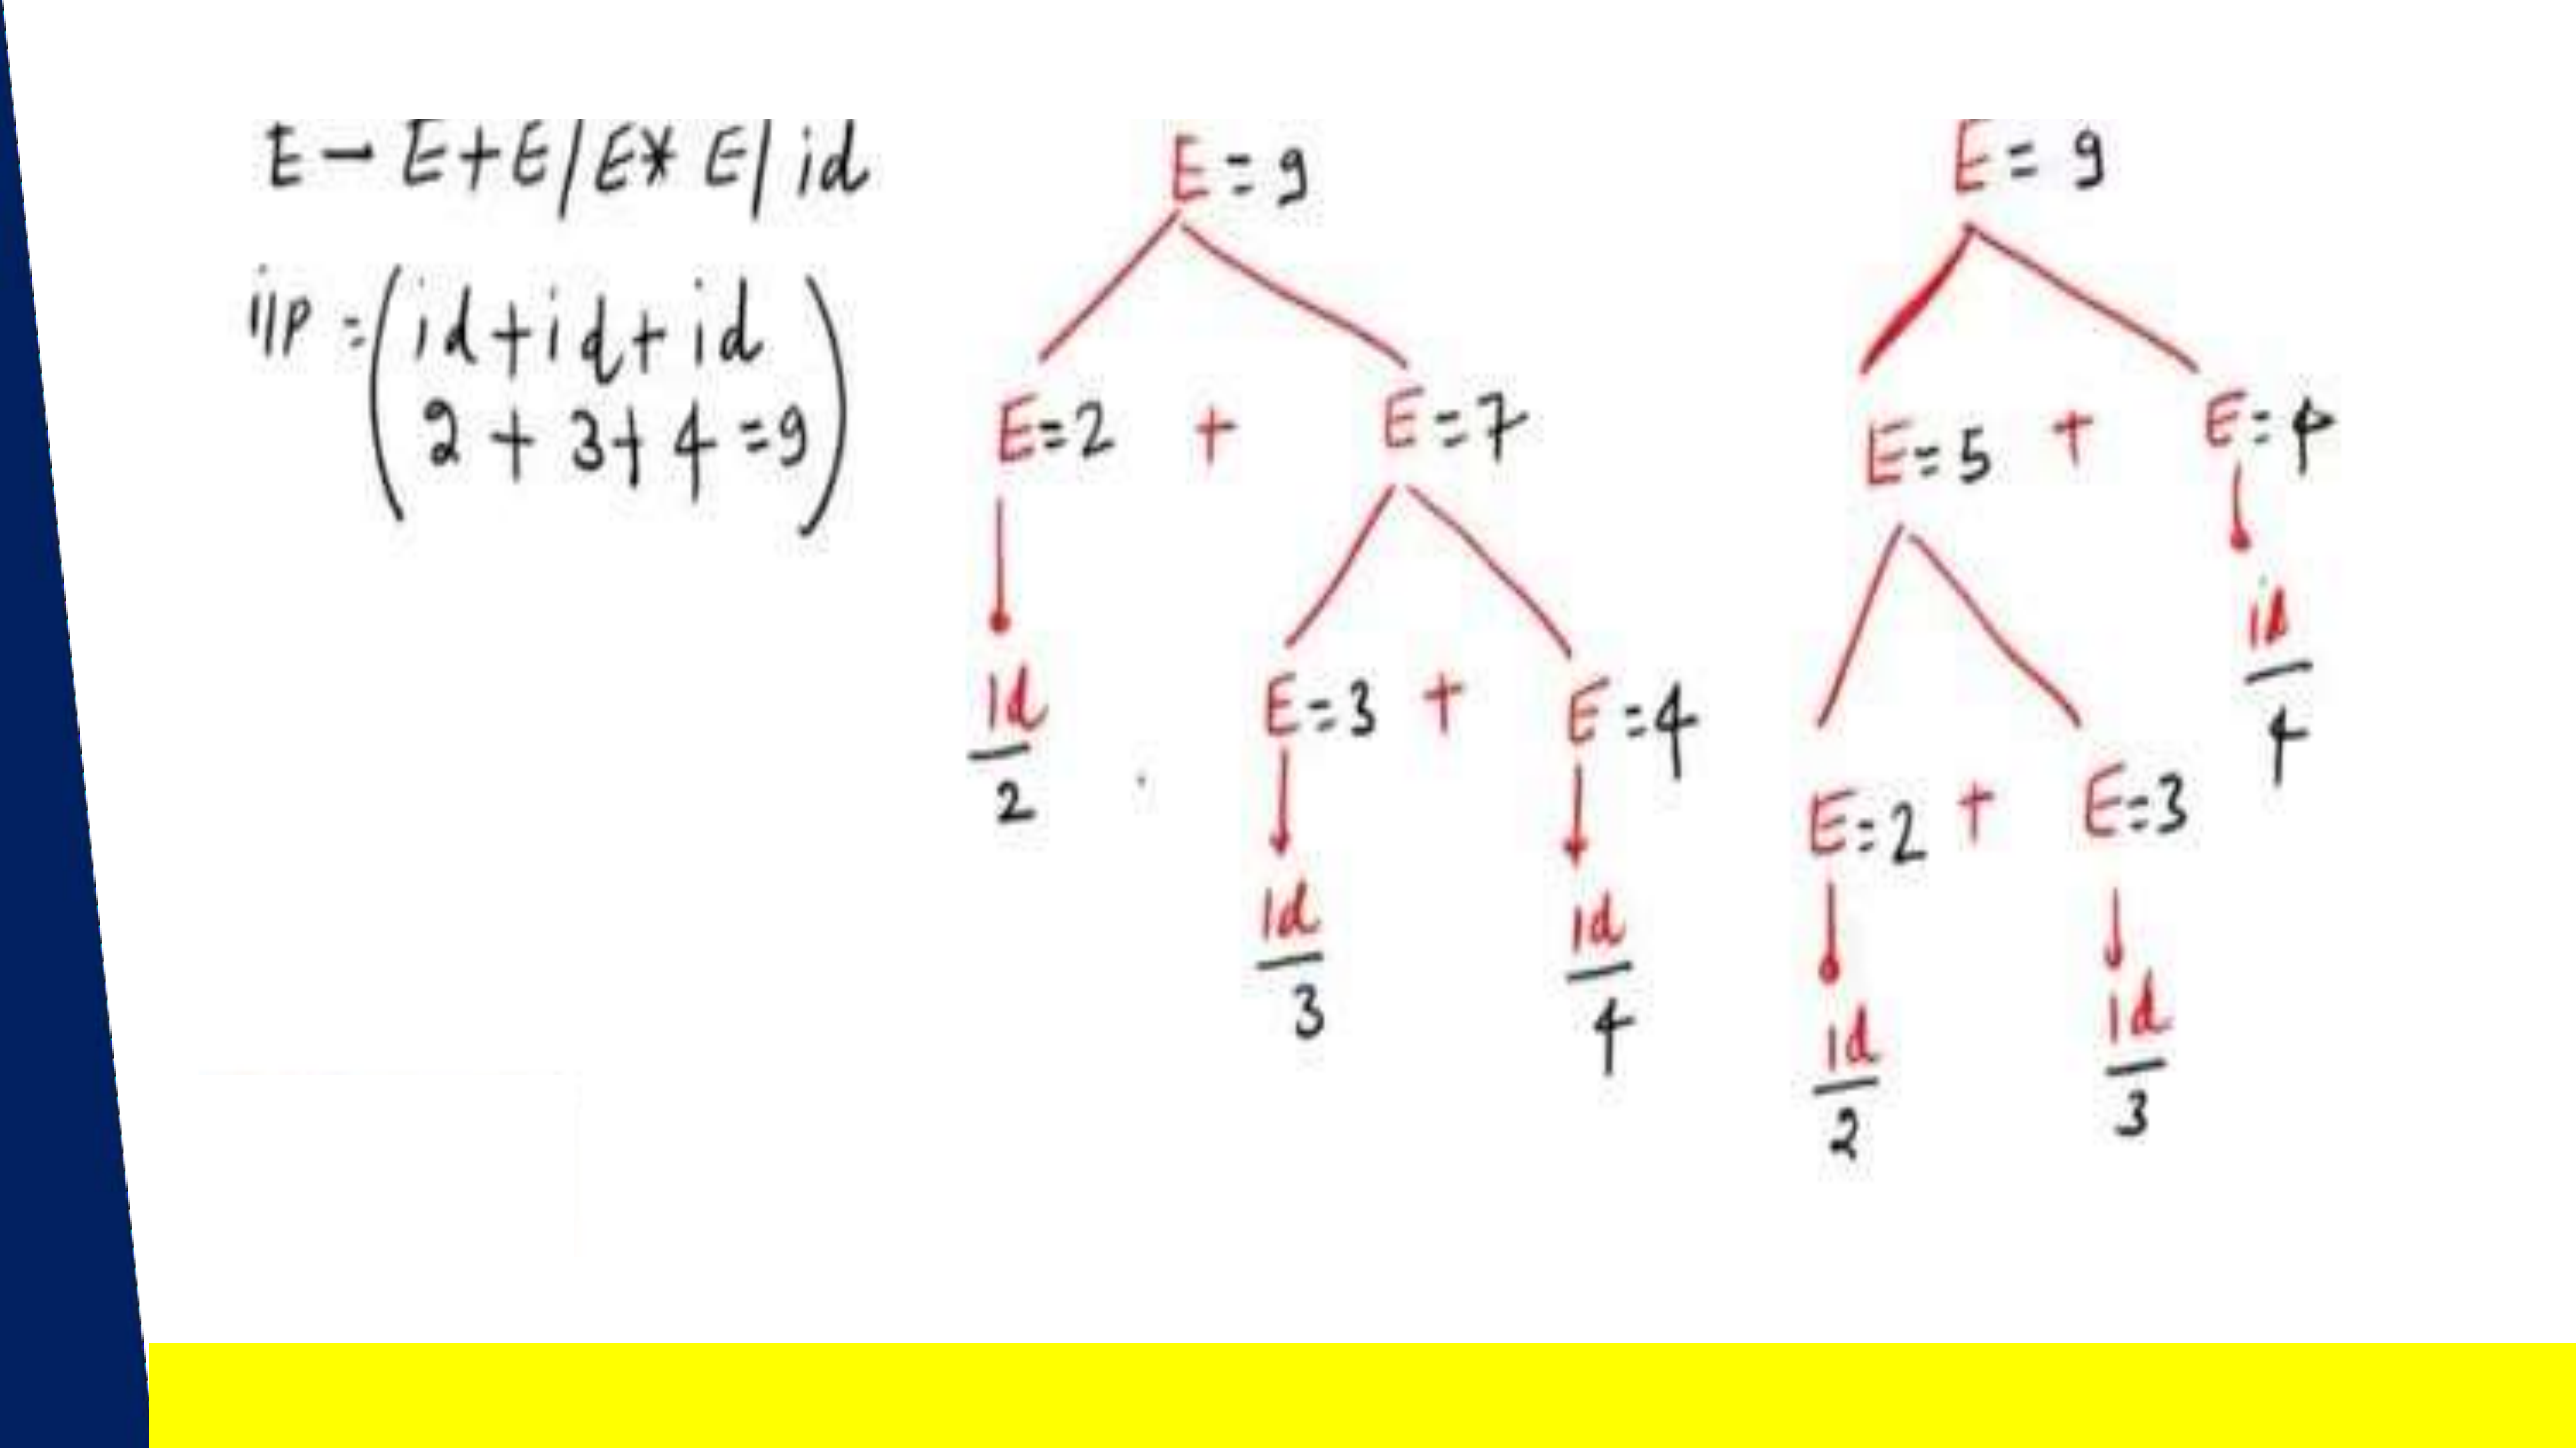 E - E+E/E* E/ id
i/p = (id+id+id
2 + 3+ 4 =9)
E = 9
E=2 + E=7
id
2
E=3 + E=4
id
3
id
4
E = 9
E=5 + E=4
id
4
E=2 + E=3
id
2
id
3